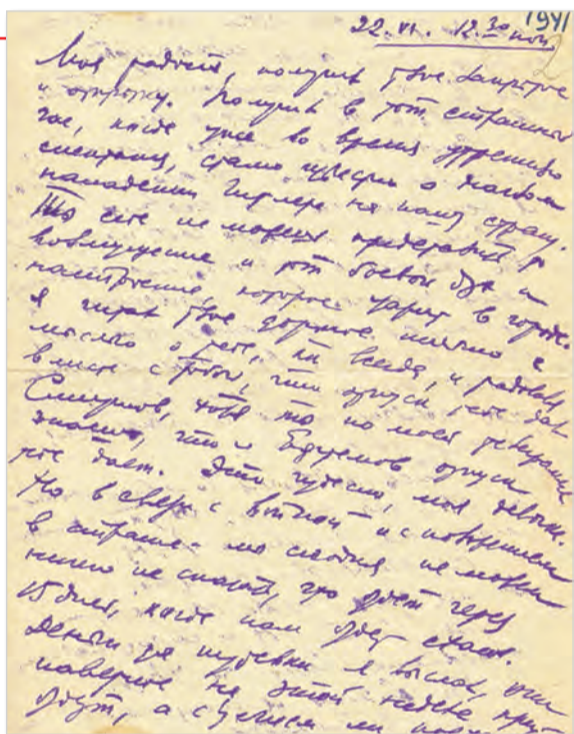 1941
22.VI. 12.30 ночи
2
Моя радость, получил твое закрытое
и открытку. Получил в тот страшный
час, когда уже во время утреннего
спектакля, стало известно о наглом
нападении Гитлера на нашу страну.
Ты себе не можешь представить
возмущение и тот боевой дух и
настроение, которое царит в городе.
Я читал твое дорогое письмо с
мыслью о тебе, и радовался
вместе с тобой, что отпуск тебе дал
Смирнов, хотя это по моей
знаешь, что и отпуск
тебе дает. Это чудесно, моя девочка.
Но в связи с войной и с положением
в стране - мы сегодня не можем
ничего не сказать, что будет через
15 дней, когда нам будет ехать.
Деньги за путевки я выслал, они
наверное на этой неделе
будут, а сумеем ли